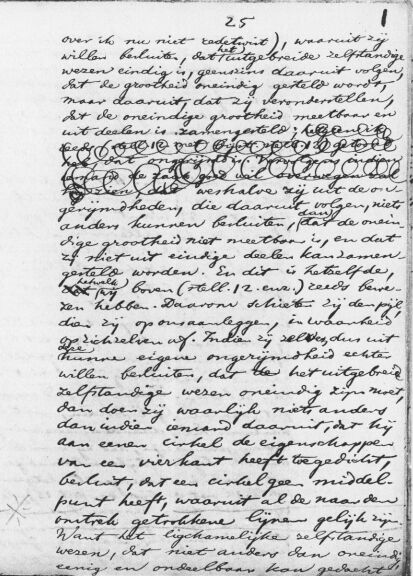 25
1
over ik nu niet redetwist), waaruit zij
willen besluiten, dat het uitgebreide zelfstandige
wezen eindig is, geenszins daaruit volgen,
dat de grootheid oneindig gesteld wordt,
maar daaruit, dat zij veronderstellen,
dat de oneindige grootheid meetbaar en
uit deelen is zamengesteld;
weshalve zij uit de on-
gerijmdheden, die daaruit volgen, niets
anders kunnen besluiten, dan dat de onein-
dige grootheid niet meetbaar is, en dat
zij niet uit eindige deelen kan zamen
gesteld worden. En dit is hetzelfde,
hetwelk wij boven (stell. 12. enz.) reeds bewe-
zen hebben. Daarom schieten zij den pijl,
dien zij op ons aanleggen, in waarheid
op zich zelven af. Indien zij dus uit
deze hunne eigene ongerijmdheid echter
willen besluiten, dat het uitgebreide
zelfstandige wezen eindig zijn moet,
dan doen zij waarlijk niets anders
dan indien iemand daaruit, dat hij
aan eenen cirkel de eigenschappen
van een vierkant heeft toegedicht,
besluit, dat een cirkel geen middel-
punt heeft, waaruit al de naar den
omtrek getrokkene lijnen gelijk zijn.
Want het ligchamelijke zelfstandige
wezen, dat niet anders dan oneindig,
eenig en ondeelbaar kan gedacht